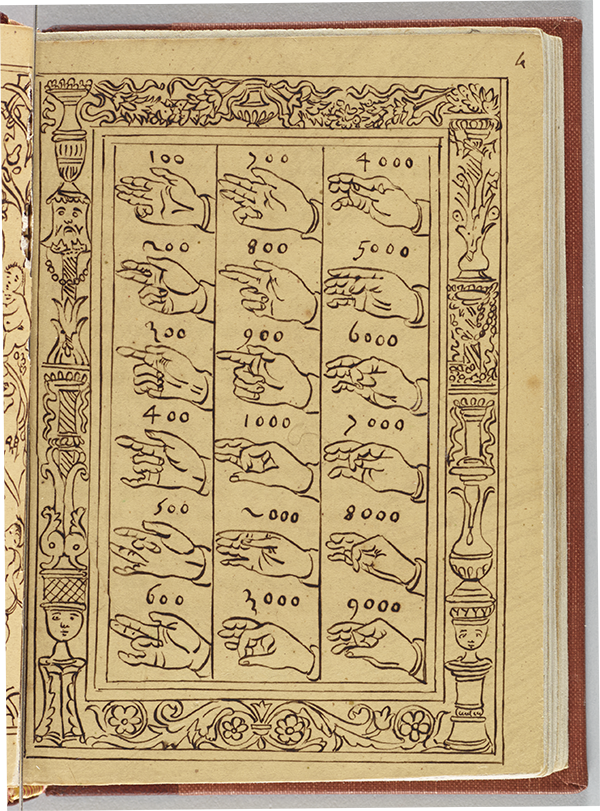 4
100 700 4000
200 800 5000
300 900 6000
400 1000 7000
500 2000 8000
600 3000 9000